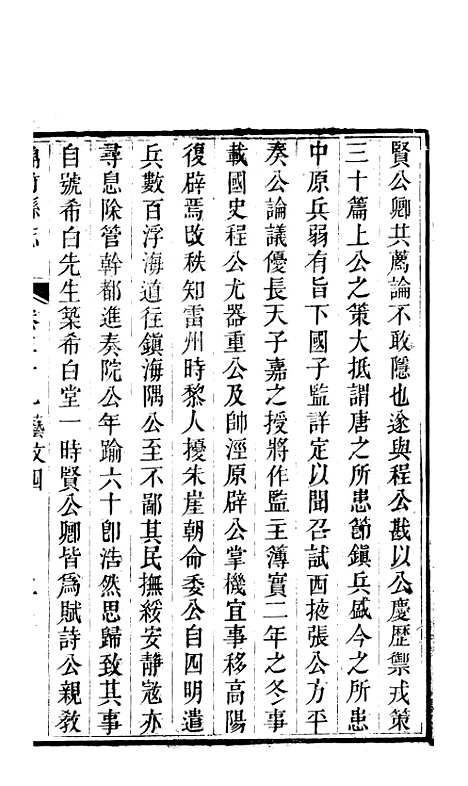 賢公卿共薦論不敢隱也遂與程公戡以公慶歷禦戎策
三十篇上公之策大抵謂唐之所患節鎮兵盛今之所患
中原兵弱有旨下國子監詳定以聞召試西掖張公方平
奏公論議優長天子嘉之授將作監主簿實二年之冬事
載國史程公尤器重公及帥涇原辟公掌機宜事移高陽
復辟焉改秩知雷州時黎人擾朱崖朝命委公自四明遣
兵數百浮海道往鎮海隅公至不鄙其民撫綏安靜寇亦
尋息除管幹都進奏院公年踰六十卽浩然思歸致其事
自號希白先生築希白堂一時賢公卿皆爲賦詩公親敎
縣志 卷二十九 藝文四